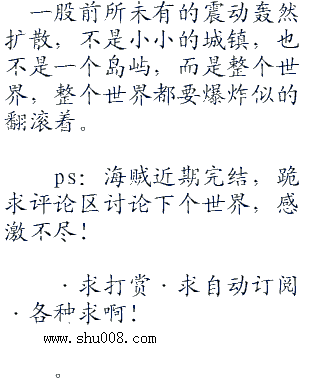 一股前所未有的震动轰然
扩散，不是小小的城镇，也
不是一个岛屿，而是整个世
界，整个世界都要爆炸似的
翻滚着。
ps：海贼近期完结，跪
求评论区讨论下个世界，感
激不尽！
·求打赏·求自动订阅
·各种求啊！
www.shu008.com
。